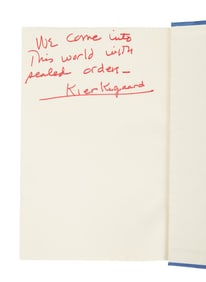 We come into
This world with
sealed orders–
Kierkegaard